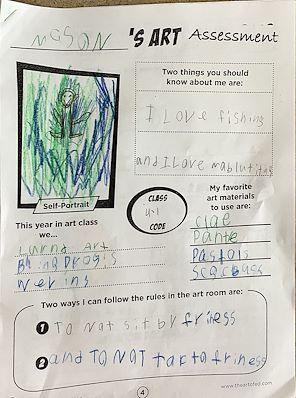 MASON 'S ART Assessment
Two things you should
know about me are:
I LOVE fishing
and I Love
Self-Portrait
CLASS
CODE
My favorite
art materials
to use are:
clae
Pante
Pastols
This year in art class
we...
Lurnd Art
Two ways I can follow the rules in the art room are:
1 To Not sit by friness
2 and TO NOT tak to friness
4
www.theartofed.com